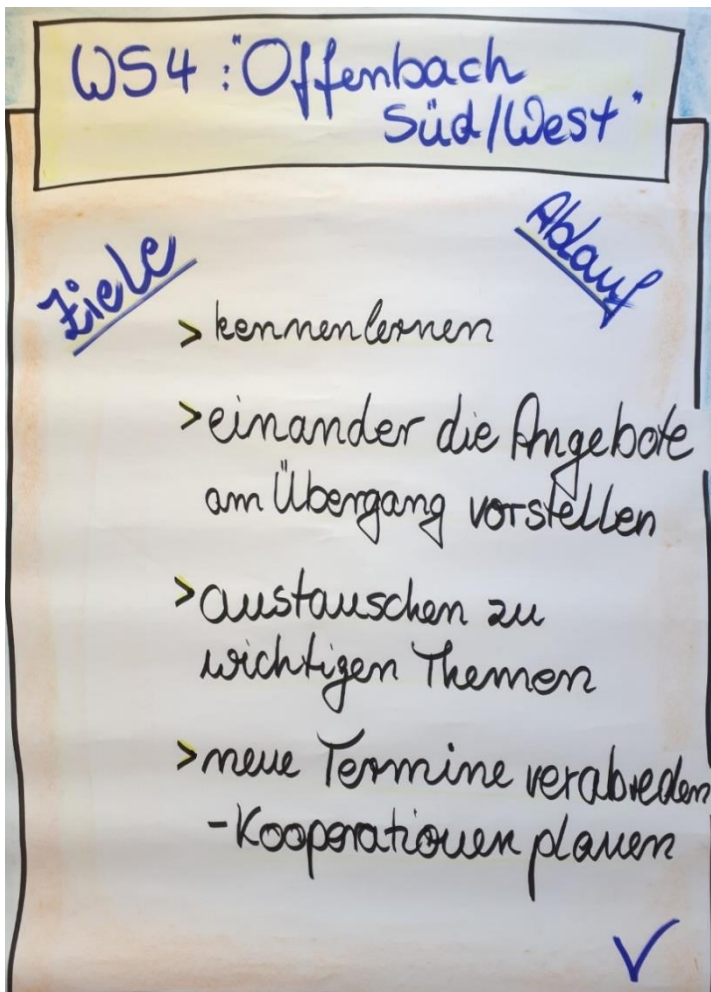 WS4: "Offenbach
Süd/West"
Ziele
Ablauf
> kennenlernen
> einander die Angebote
am Übergang vorstellen
> austauschen zu
wichtigen Themen
> neue Termine verabreden
- Kooperationen planen